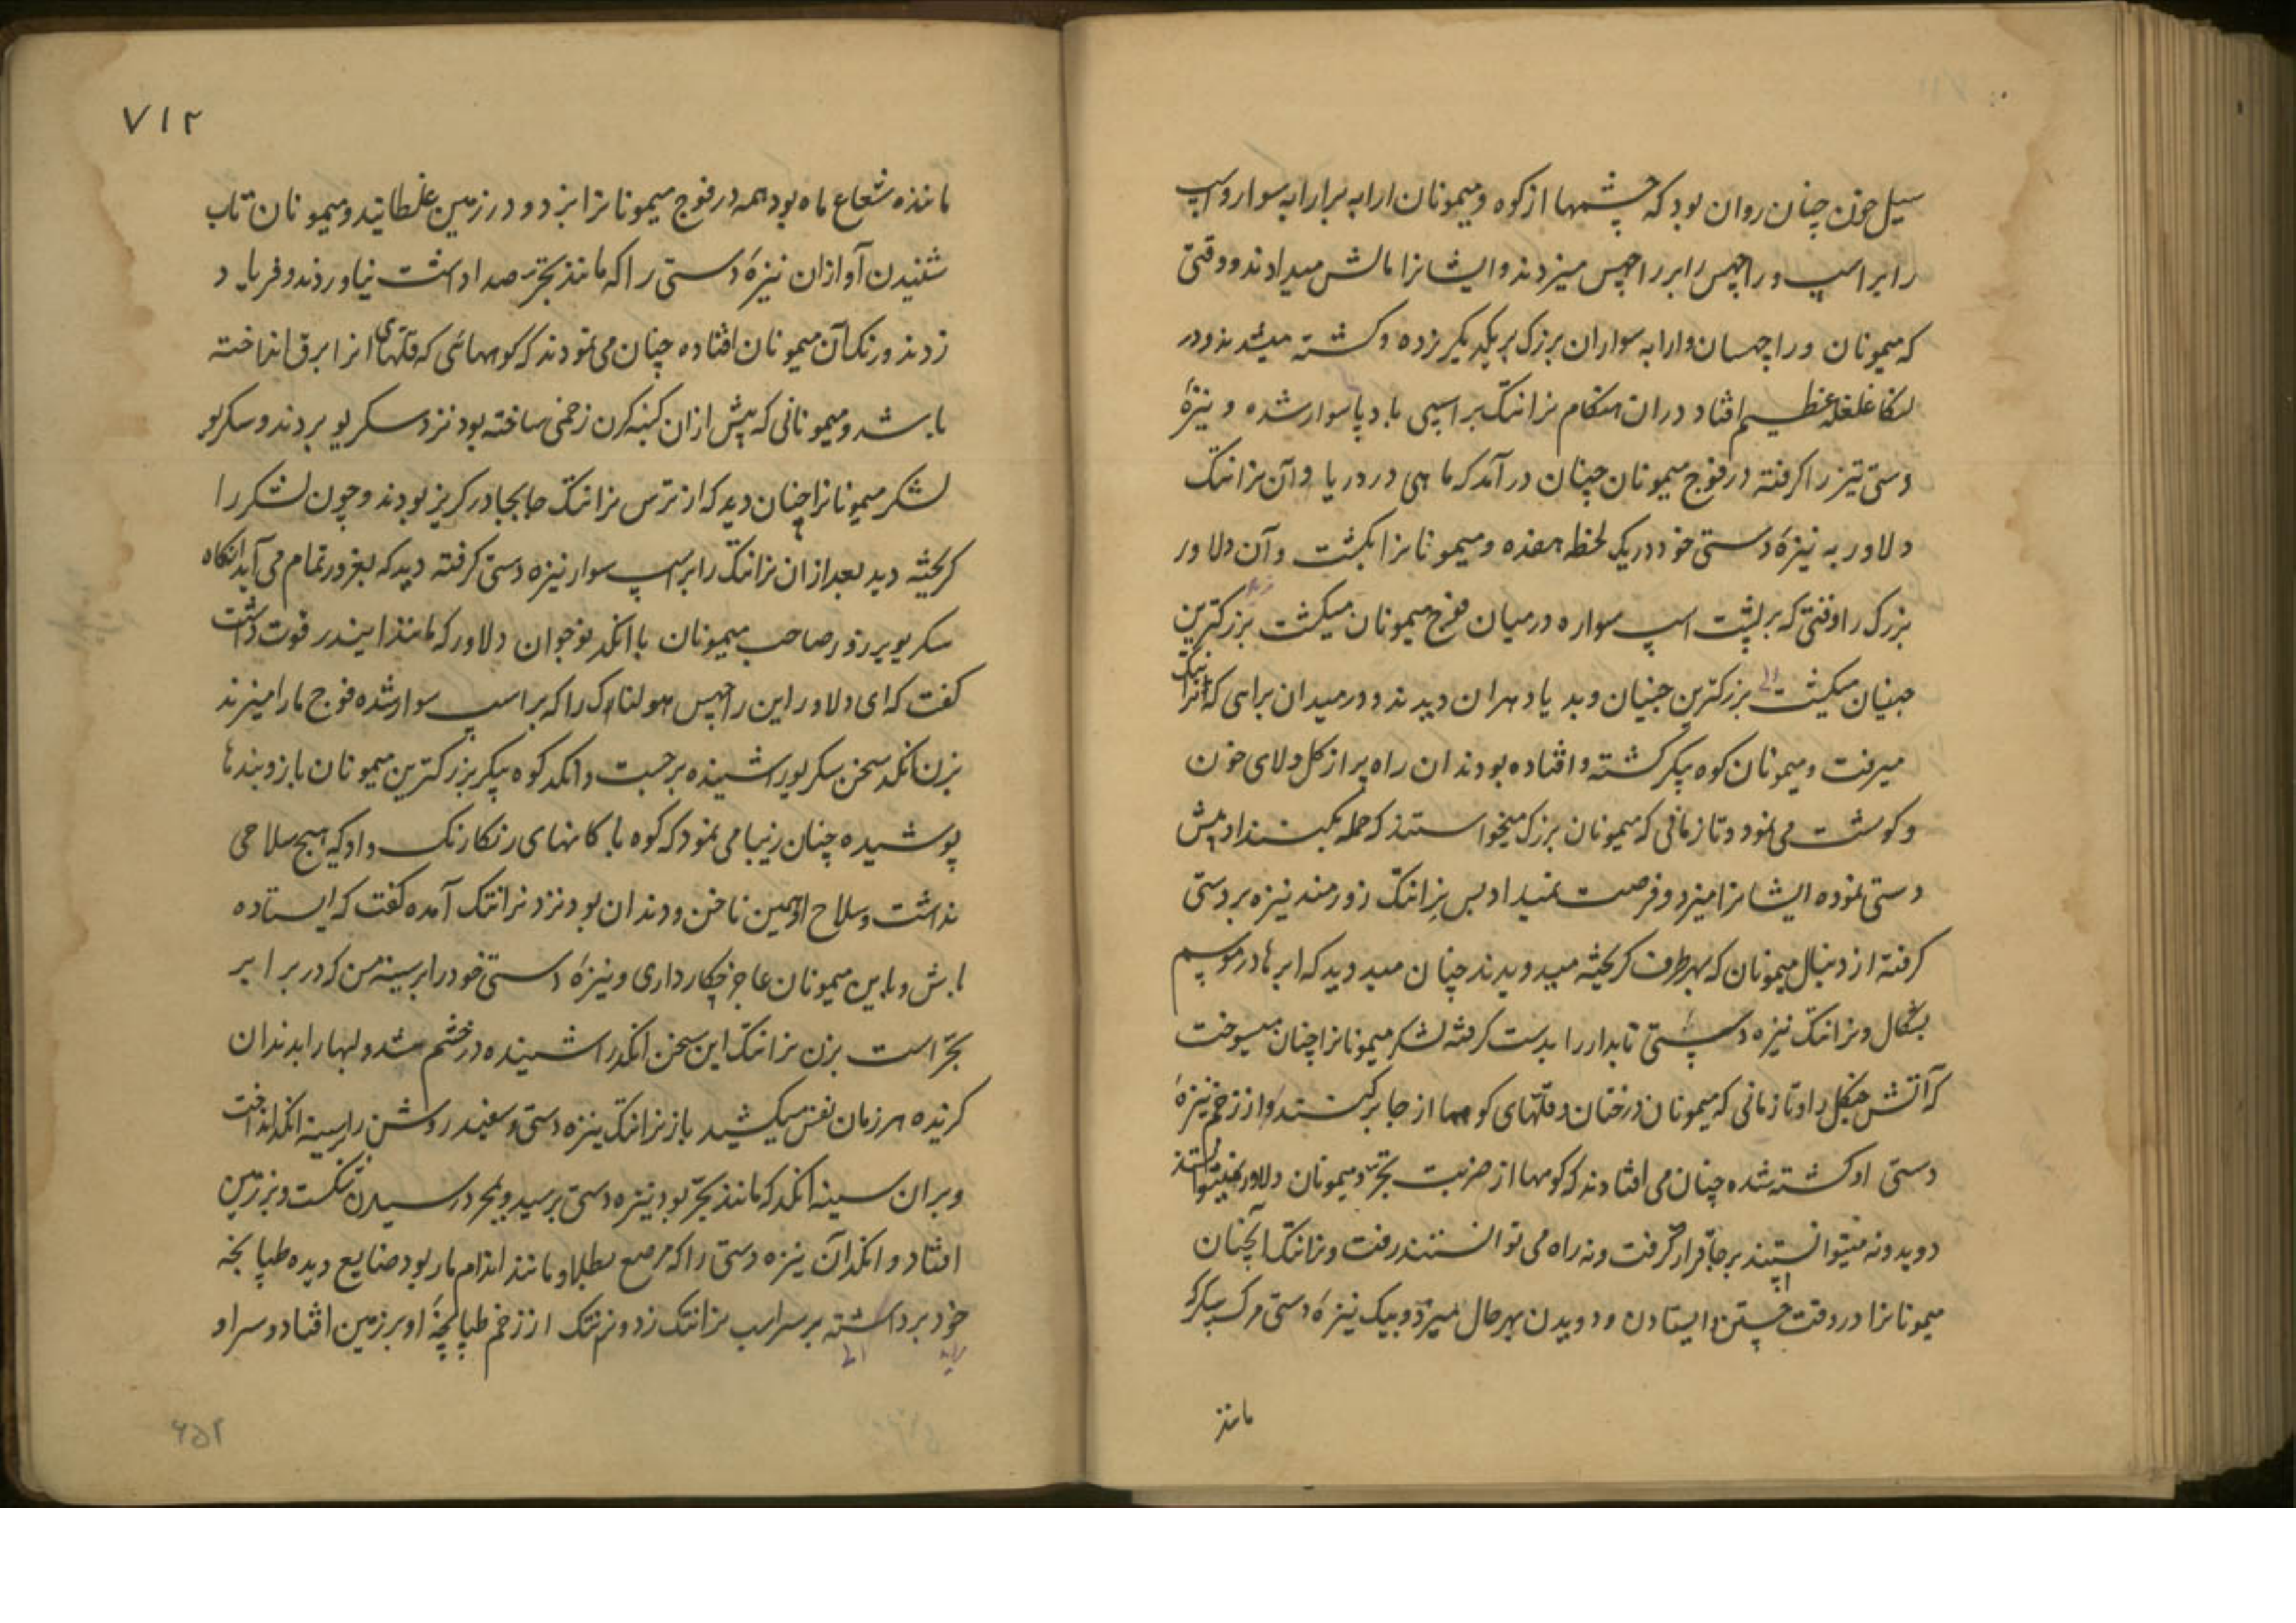 سیل خون چنان روان بود که چشمها از کوه و میمونان ارابه برارابه سوار و اسپ
را بر اسپ و راچهس را بر راچهس میزدند و ایشانرا مالش میدادند و وقتی
که میمونان و راچهسان و ارابه سواران بزرک بر یکدیکر زده و کشته میشدند و در
لنکا غلغله عظیم افتاد دران هنکام نرانتک بر اسپی باد پا سوار شده و نیزهٔ
دستی تیز را کرفته در فوج میمونان چنان در آمد که ماهی در دریا و آن نرانتک
دلاور به نیزهٔ دستی خود در یک لحظه هفده و میمونانرا بکشت و آن دلاور
بزرک را وقتی که بر پشت اسپ سواره در میان فوج میمونان میکشت بزرکترین
جنیان میکشت بزرکترین جنیان و بدیادهران دیدند و در میدان براهی که نرانتک
میرفت و میمونان کوه پیکر کشته و افتاده بودند ان راه پر از کل و لای خون
و کوشت می نمود و تا زمانی که میمونان بزرک میخواستند که حمله بکنند او پیش
دستی نموده ایشانرا میزد و فرصت نمیداد پس نرانتک زورمند نیزه بردستی
کرفته از دنبال میمونان که بهر طرف کریخته میدویدند چنان میدوید که ابرها در موسم
بشکال و نرانتک نیزه دستی تابدار را بدست کرفته لشکر میمونانرا چنان میسوخت
که آتش جنکل را و تا زمانی که میمونان درختان و قلهای کوهها از جا برکنند و از زخم نیزهٔ
دستی او کشته شده چنان می افتادند که کوهها از ضربت بجر و میمونان دلاور نمیتوانستند
دوید و نه میتوانستند بر جا قرار کرفت و نه راه می توانستند رفت و نرانتک آنچنان
میمونانرا در وقت جستن و ایستادن و دویدن بهر حال میزد و بیک نیزهٔ دستی مرک پیکر که
مانند
۷۱۲
مانند شعاع ماه بود همه در فوج میمونانرا بزد و در زمین غلطانید و میمونان تاب
شنیدن آواز ان نیزهٔ دستی را که مانند بجر صدا داشت نیاوردند و فریاد
زدند و رنک آن میمونان افتاده چنان می نمودند که کوههائی که قلهای انرا برق انداخته
باشد و میمونانی که پیش ازان کنبهه کرن زخمی ساخته بود نزد سکریو بردند و سکریو
لشکر میمونانرا چنان دید که از ترس نرانتک جابجا در کریز بودند و چون لشکر را
کریخته دید بعد ازان نرانتک را بر اسپ سوار نیزه دستی کرفته دید که بغرور تمام می آید انکاه
سکریو پر زور صاحب میمونان با انکد نوجوان دلاور که مانند ایندر قوت داشت
کفت که ای دلاور این راچهس هولناک را که بر اسپ سوار شده فوج ما را میزند
بزن انکد سخن سکریو را شنیده برجست و انکد کوه پیکر بزرکترین میمونان بازوبندها
پوشیده چنان زیبا می نمود که کوه با کانهای رنکارنک و او که هیچ سلاحی
نداشت و سلاح او همین ناخن و دندان بود نزد نرانتک آمده کفت که ایستاده
باش و باین میمونان عاجز چکار داری و نیزهٔ دستی خود را بر سینه من که در برابر
بجر است بزن نرانتک این سخن انکد را شنیده در خشم شد و لبها را بدندان
کزیده هر زمان نفس میکشید باز نرانتک نیزه دستی و سفید روشن را بر سینه انکد انداخت
و بران سینه انکد که مانند بجر بود نیزه دستی برسید و بمجرد رسیدن شکست و بر زمین
افتاد و انکد آن نیزه دستی را که مرصع بطلا و مانند اندام مار بود ضایع دیده طپانچه
خود برداشته بر سر اسپ نرانتک زد و نرنتک از زخم طپانچهٔ او بر زمین افتاد و سر او
۶۵۲